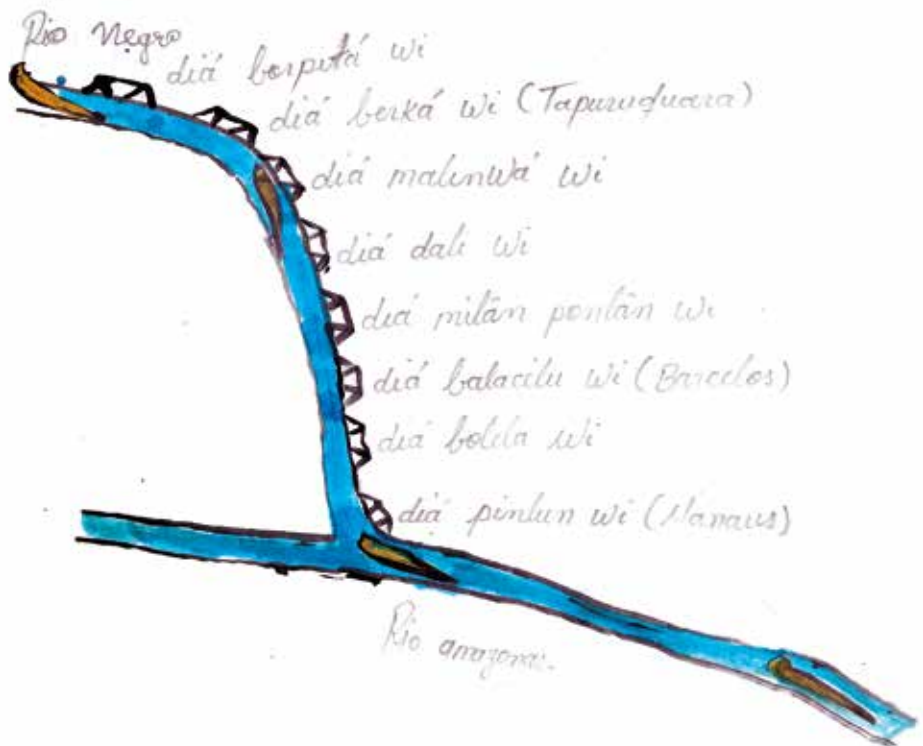 Rio Negro
diá borpitá wi
diá berká wi (Tapuruquara)
diá malinwá wi
diá dali wi
diá milân ponlân wi
diá balacilu wi (Barcelos)
diá bolela wi
diá pinlun wi (Manaus)
Rio amazonas.